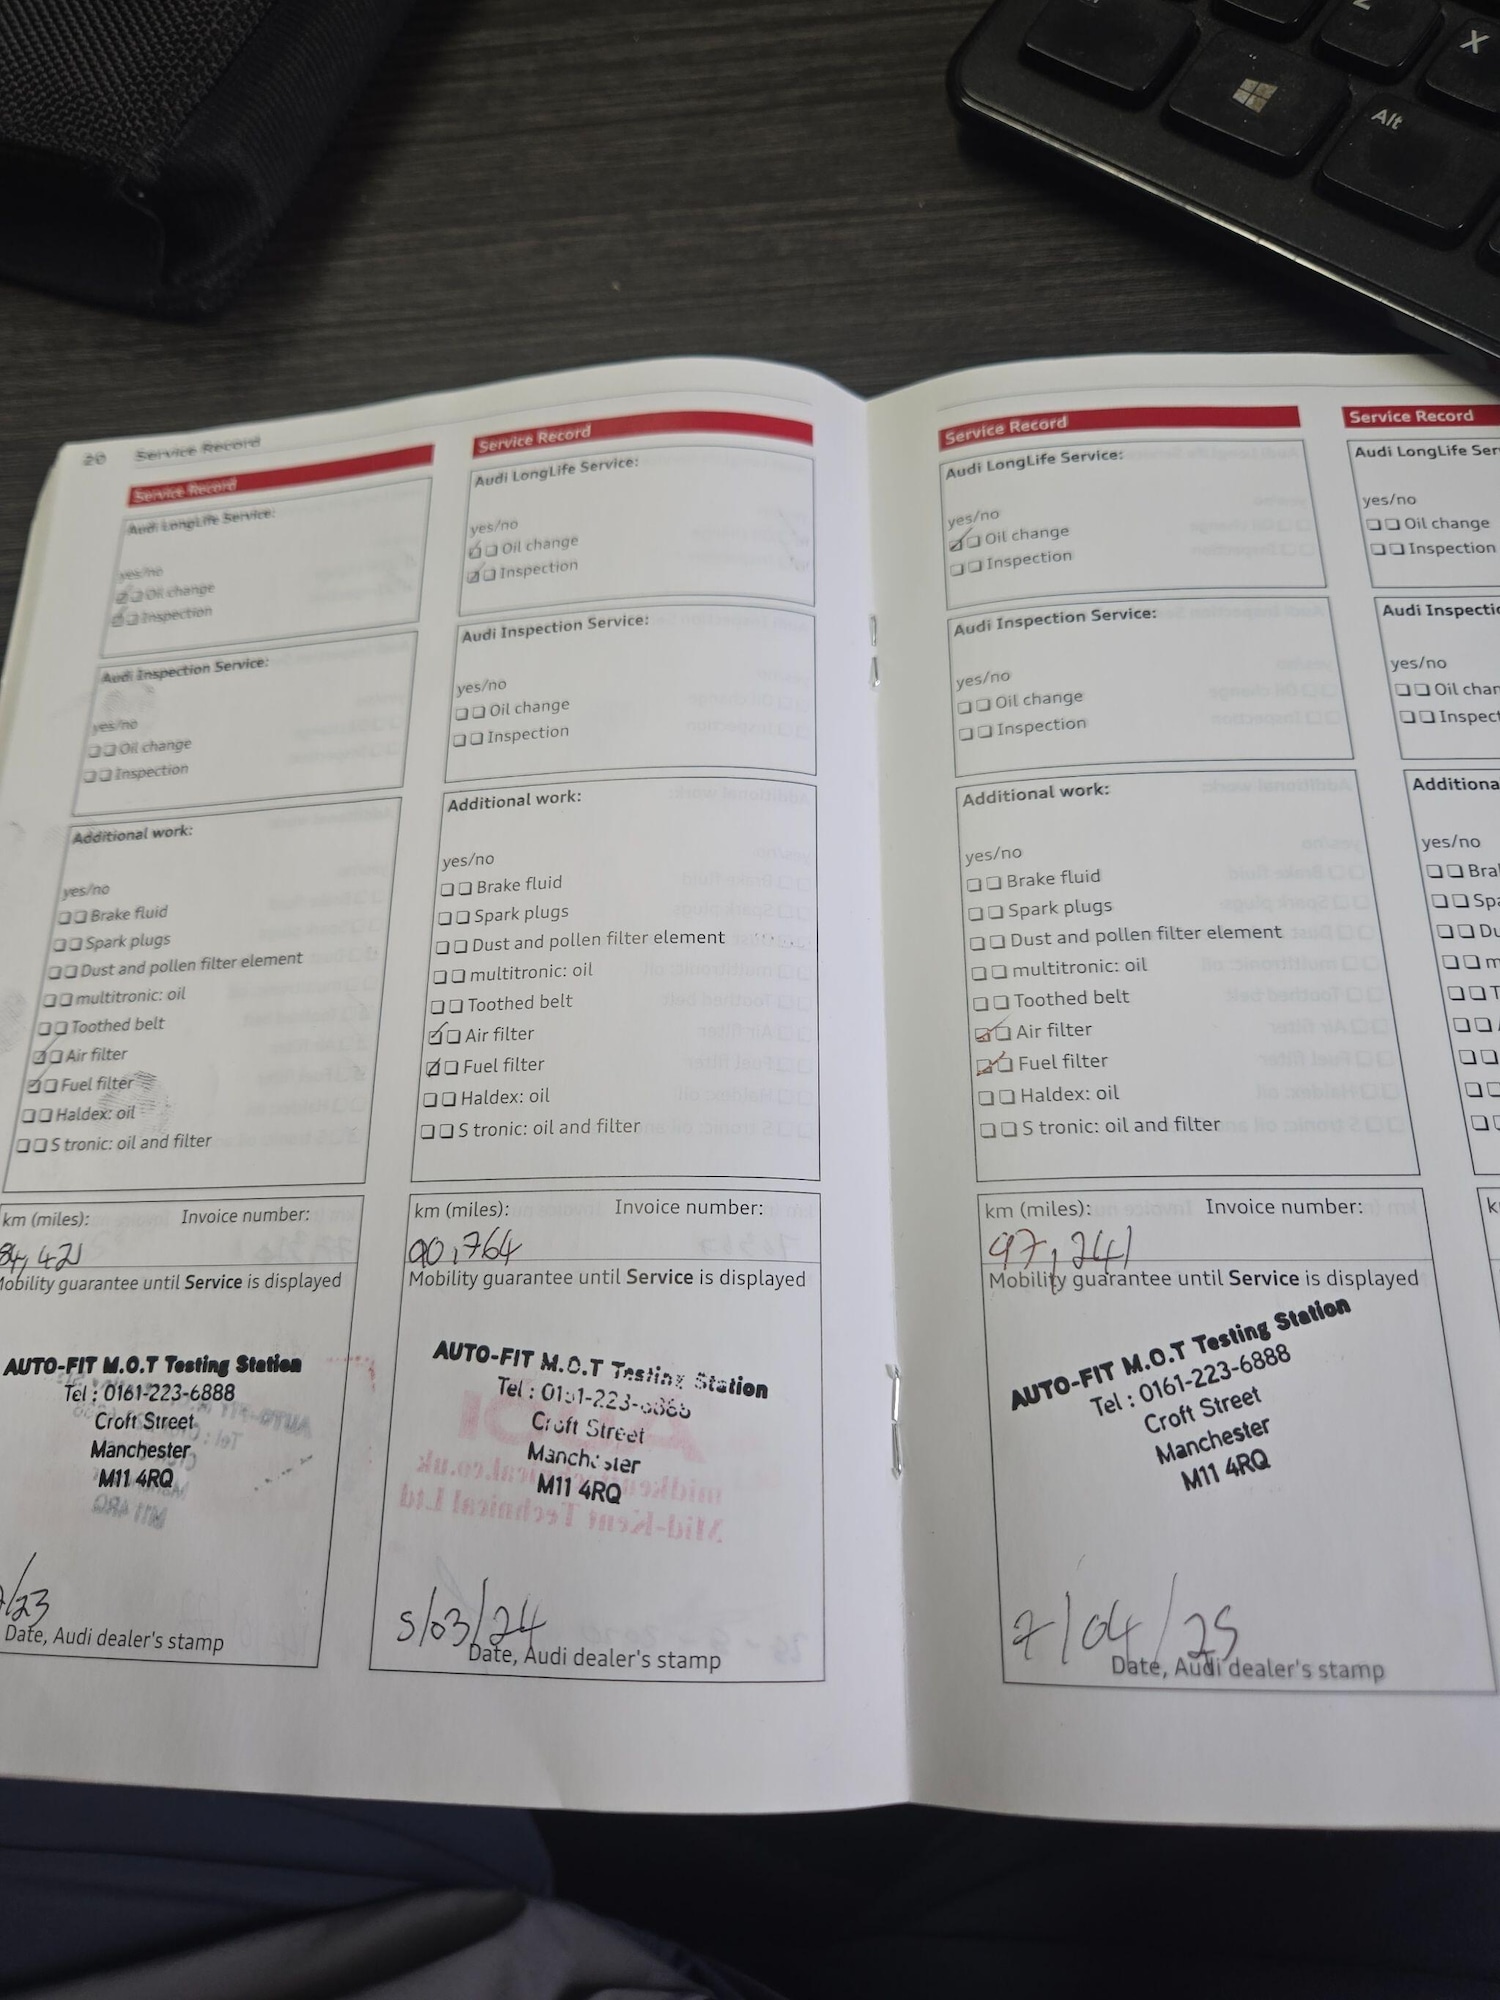 Alt
X
20 Service Record
Service Record
Audi LongLife Service:
yes/no
Oil change
Inspection
Audi Inspection Service:
yes/no
Oil change
Inspection
Additional work:
yes/no
Brake fluid
Spark plugs
Dust and pollen filter element
multitronic: oil
Toothed belt
Air filter
Fuel filter
Haldex: oil
S tronic: oil and filter
km (miles): Invoice number:
84,421
Mobility guarantee until Service is displayed
AUTO-FIT M.O.T Testing Station
Tel : 0161-223-6888
Croft Street
Manchester
M11 4RQ
/23
Date, Audi dealer's stamp
Service Record
Audi LongLife Service:
yes/no
Oil change
Inspection
Audi Inspection Service:
yes/no
Oil change
Inspection
Additional work:
yes/no
Brake fluid
Spark plugs
Dust and pollen filter element
multitronic: oil
Toothed belt
Air filter
Fuel filter
Haldex: oil
S tronic: oil and filter
km (miles): Invoice number:
90,764
Mobility guarantee until Service is displayed
AUTO-FIT M.O.T Testing Station
Tel : 0161-223-6888
Croft Street
Manchester
M11 4RQ
5/03/24
Date, Audi dealer's stamp
Service Record
Audi LongLife Service:
yes/no
Oil change
Inspection
Audi Inspection Service:
yes/no
Oil change
Inspection
Additional work:
yes/no
Brake fluid
Spark plugs
Dust and pollen filter element
multitronic: oil
Toothed belt
Air filter
Fuel filter
Haldex: oil
S tronic: oil and filter
km (miles): Invoice number:
97,241
Mobility guarantee until Service is displayed
AUTO-FIT M.O.T Testing Station
Tel : 0161-223-6888
Croft Street
Manchester
M11 4RQ
7/04/25
Date, Audi dealer's stamp
Service Record
Audi LongLife Ser
yes/no
Oil change
Inspection
Audi Inspectio
yes/no
Oil chan
Inspect
Additiona
yes/no
Bra
Sp
Du
m
T